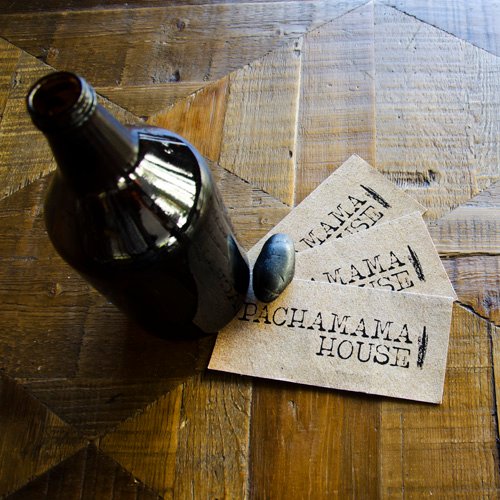 MAMA
USE
MAMA
HOUSE
PACHAMAMA
HOUSE